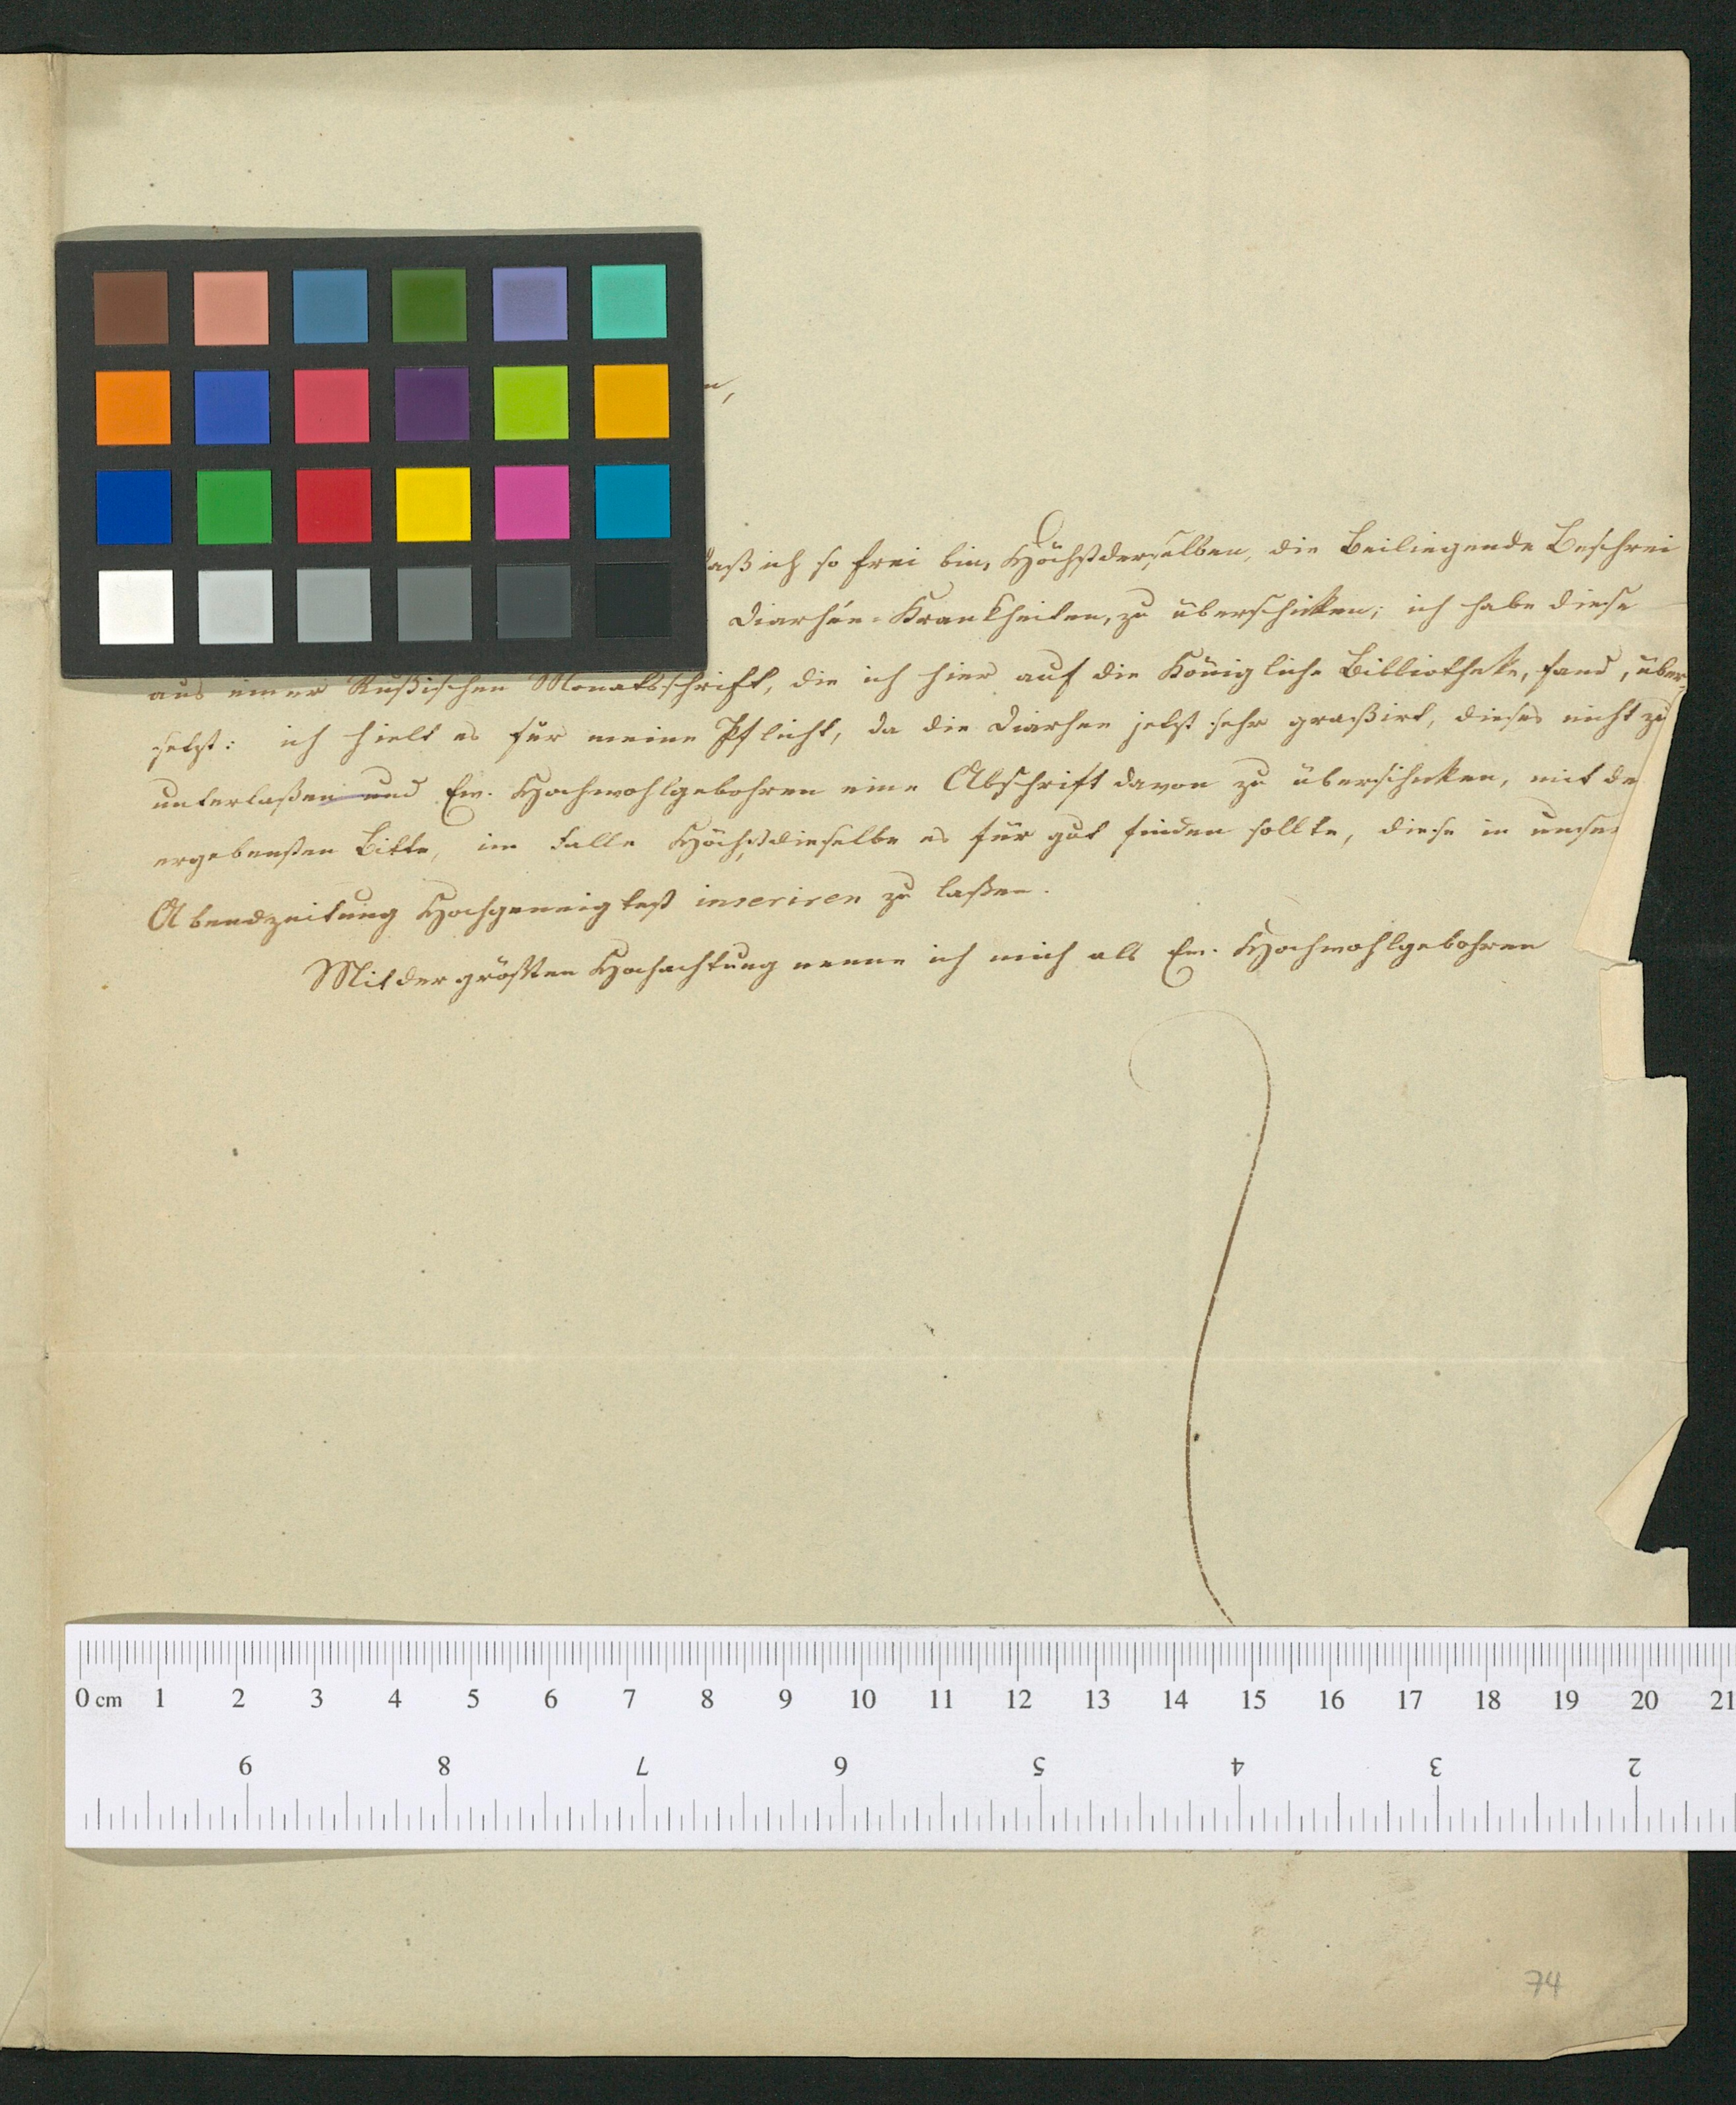 n,
daß ich so frei bin, Höchstderselben, die Beiliegende Beschrei
Diarhée-Krankheiten, zu überschikken; ich habe diese
aus einer Rußischen Monatsschrift, die ich hier auf die Königliche Bibliotheke, fand, über-
setzt: ich hielt es für meine Pflicht, da die Diarhee jetzt sehr graßirt, dieses nicht zu
unterlaßen und Ew. Hochwohlgebohren eine Abschrift davon zu überschikken, mit de
ergebensten Bitte, im Falle Höchstdieselbe es für gut finden sollte, diese in unser
Abendzeitung Hochgeneigtest inseriren zu laßen.
Mit der größten Hochachtung nenne ich mich als Ew. Hochwohlgebohren
0 cm 1 2 3 4 5 6 7 8 9 10 11 12 13 14 15 16 17 18 19 20 21
9 8 7 6 5 4 3 2
74